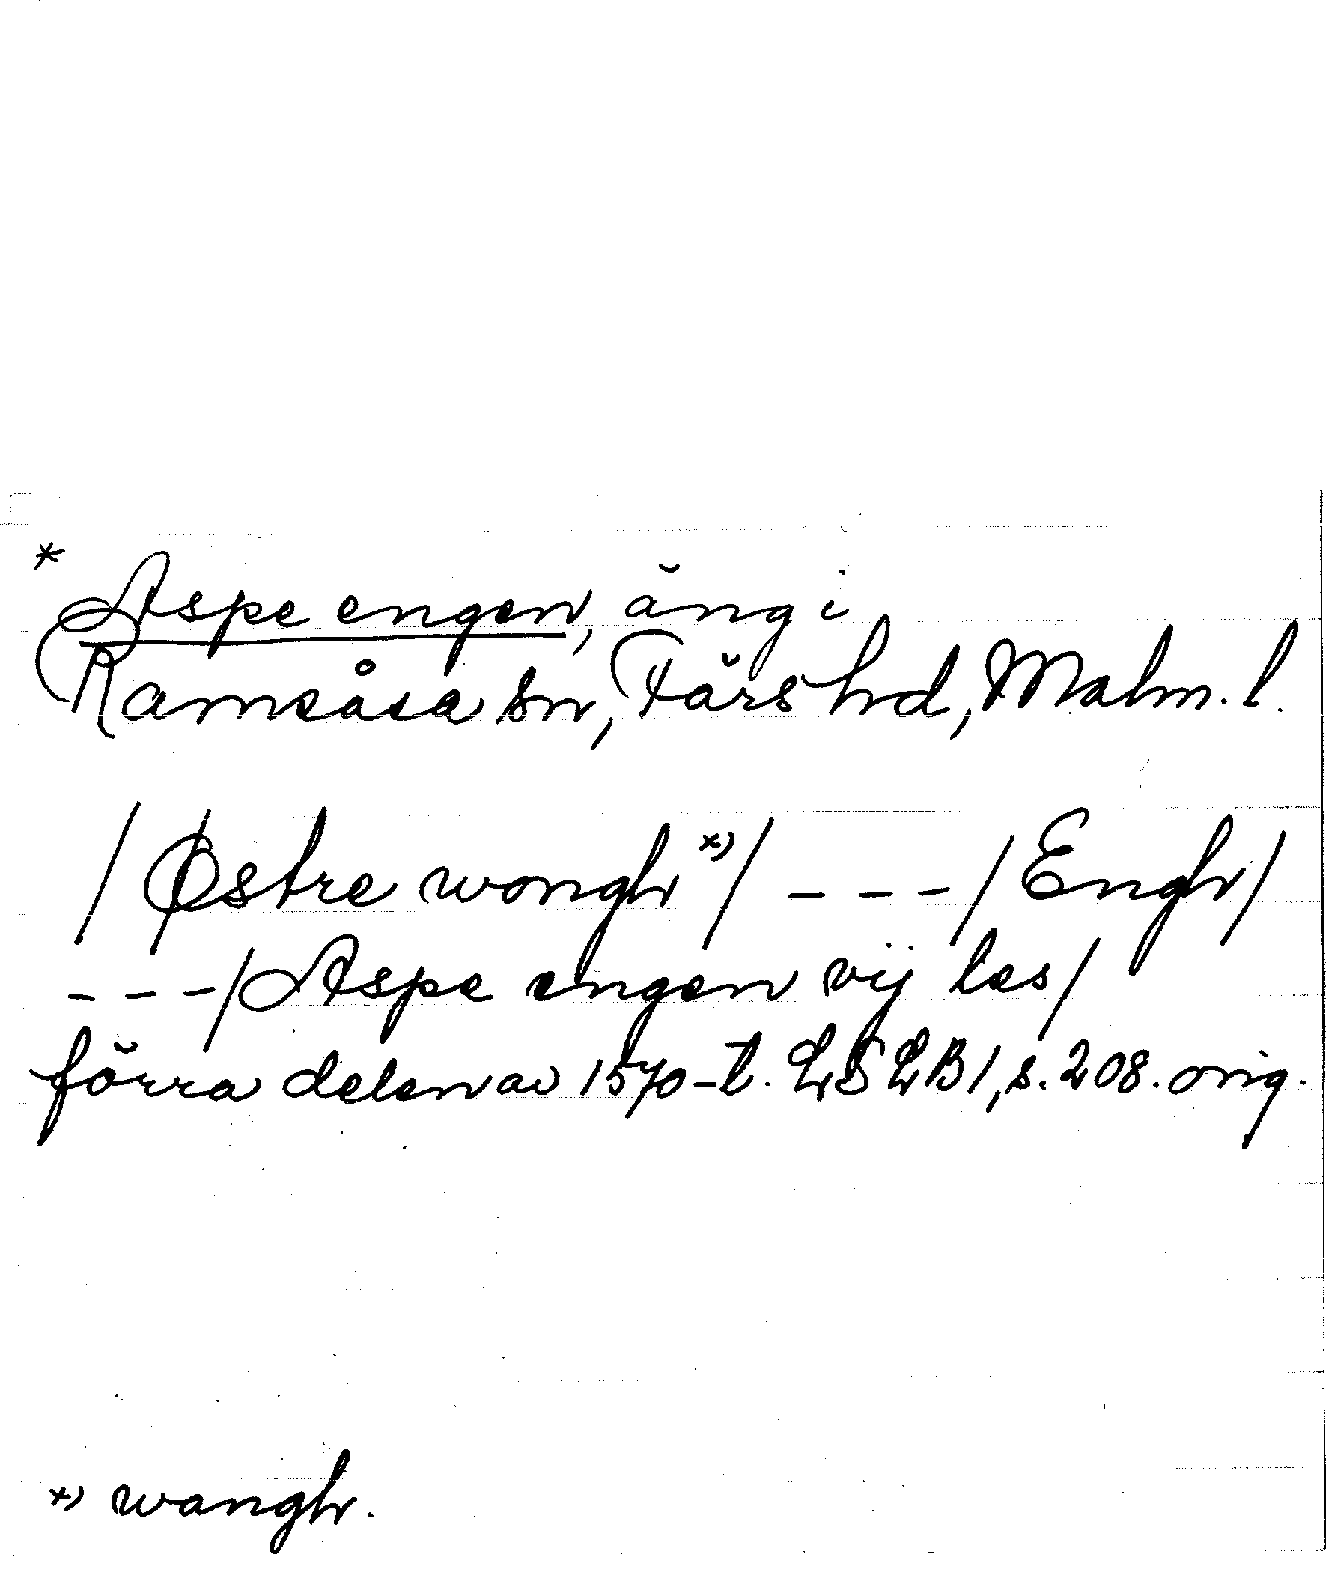 *
Aspe engen, äng i
Ramsåsa sn, Färs hd, Malm. l.
/ Østre wongh *) / - - - / Engh /
- - - / Aspe engen vij les /
förra delen av 1570-t. LSLB 1, s. 208. orig.
*) wangh.